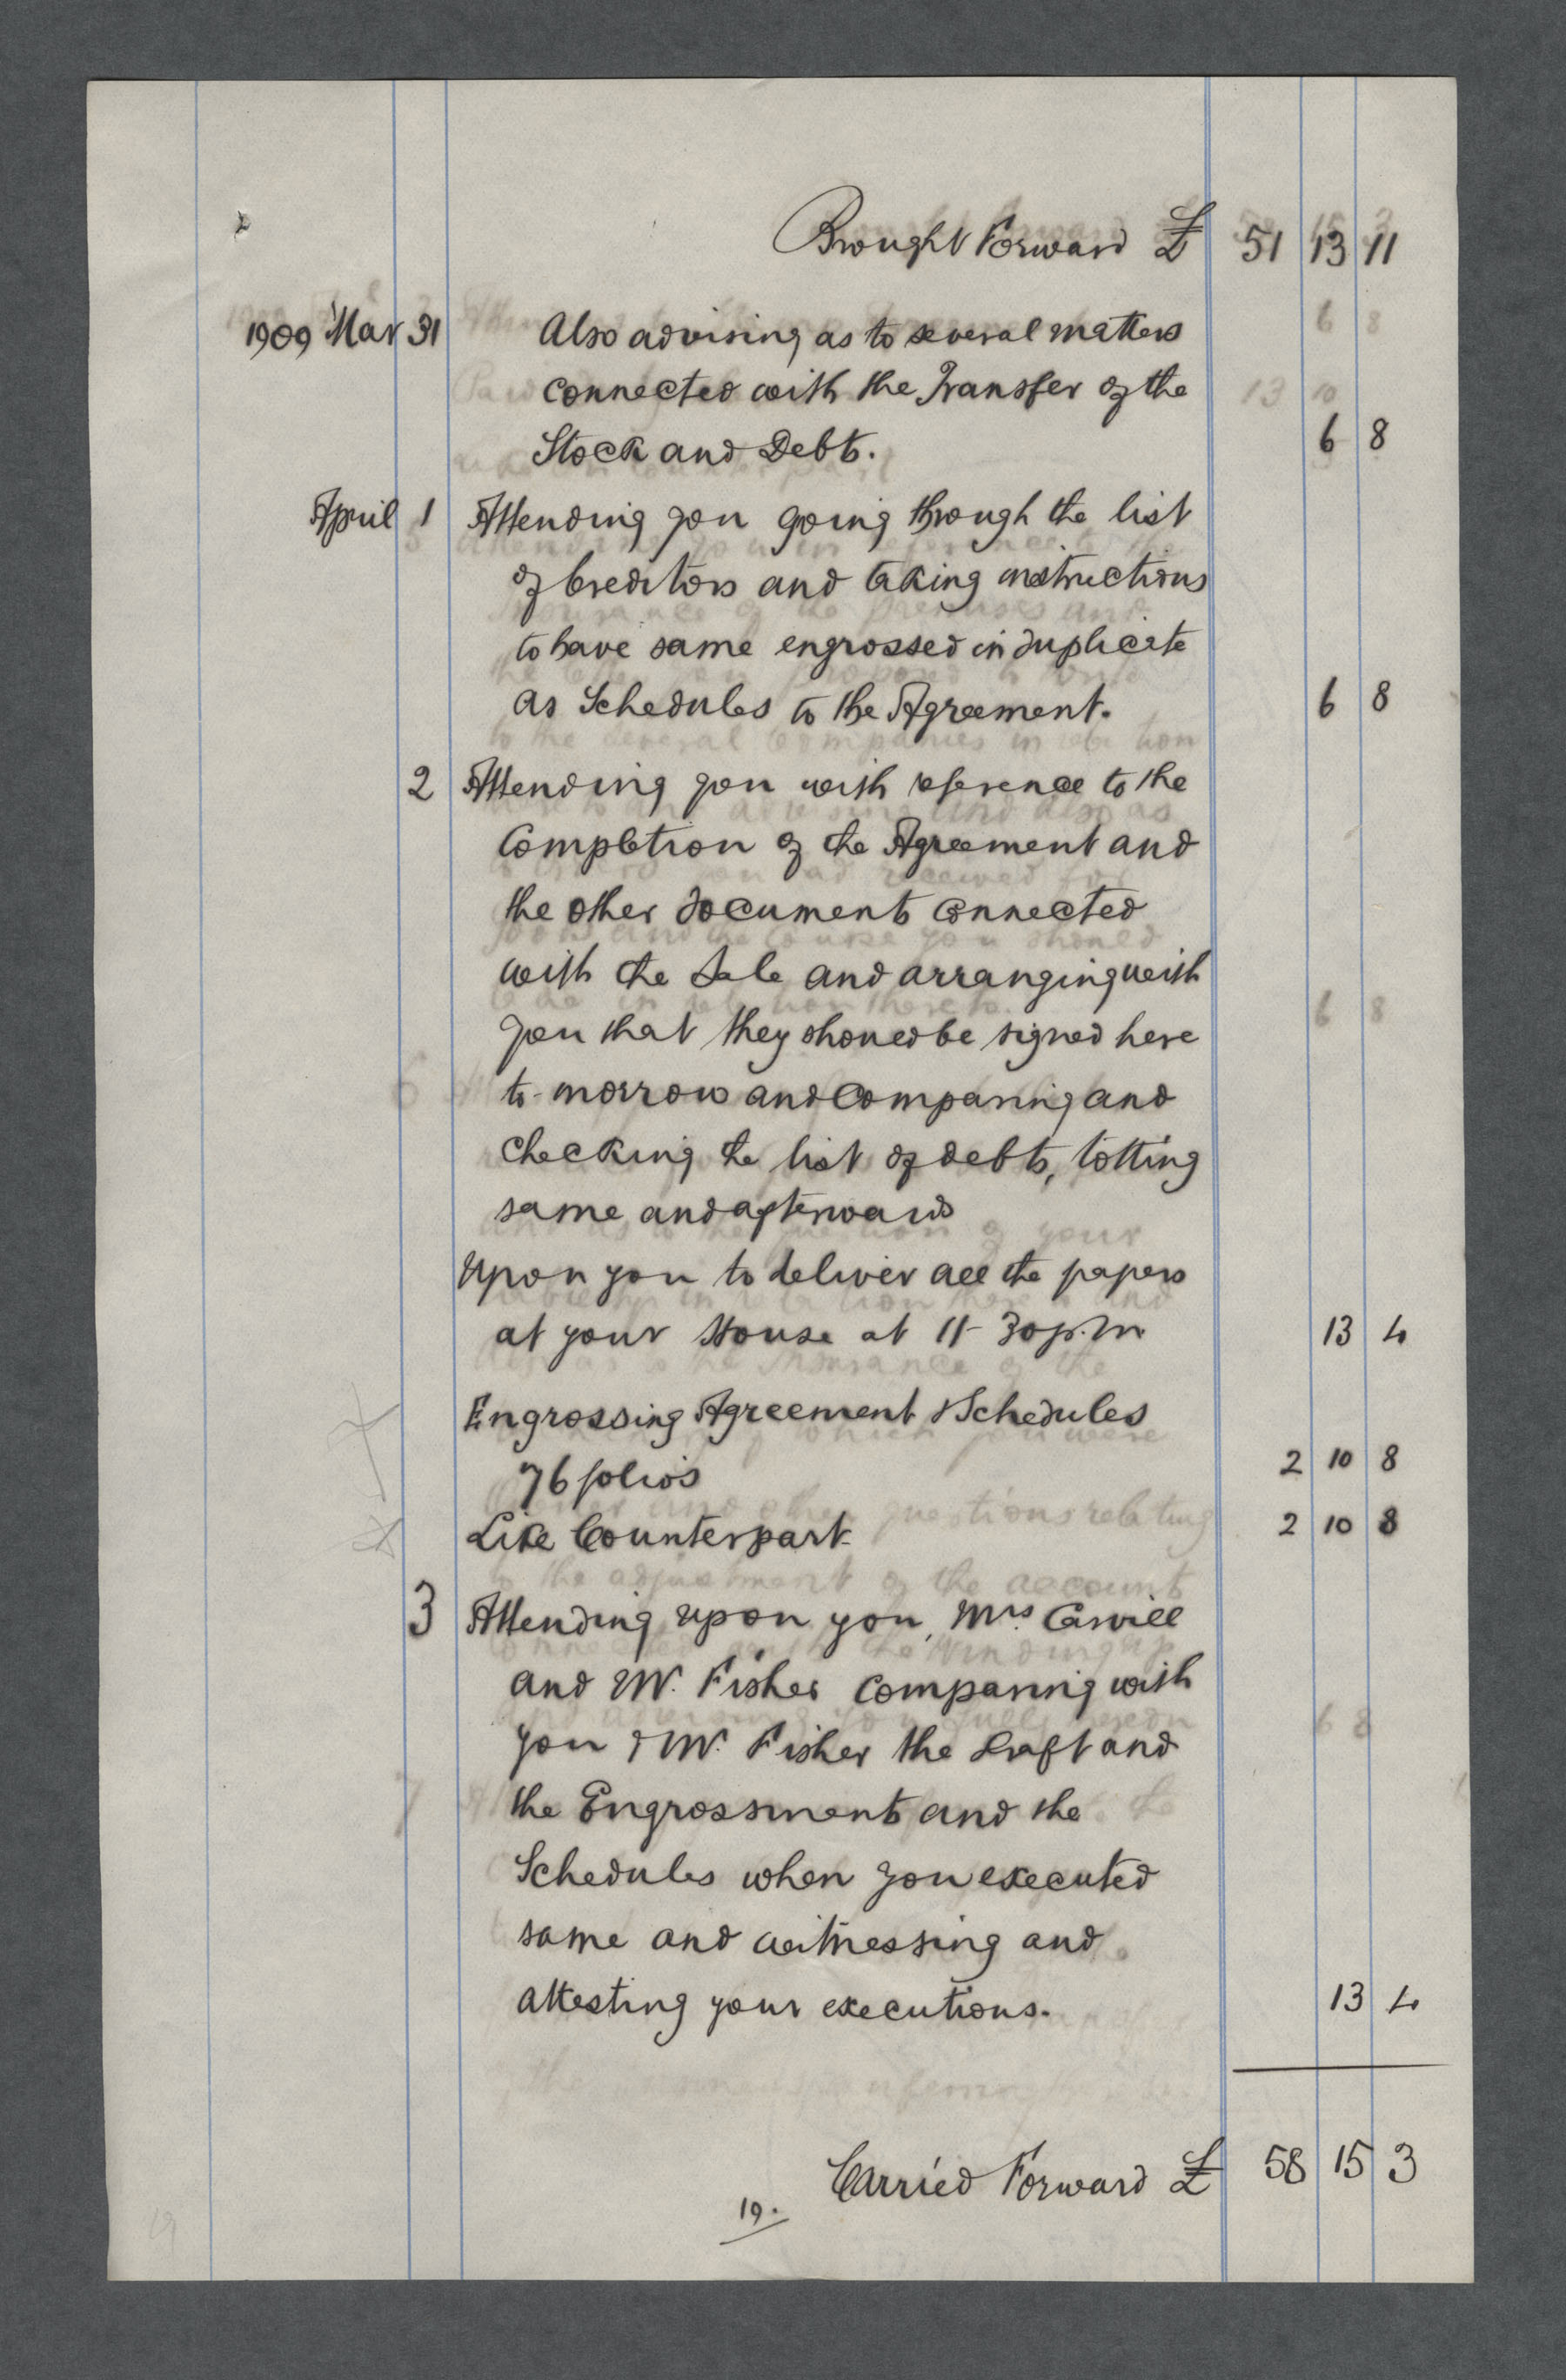 Brought Forward £ 51 13 11
1909 Mar 31 Also advising as to several matters
connected with the Transfer of the
Stock and Debts. 6 8
April 1 Attending you going through the list
of Creditors and taking instructions
to have same engrossed in duplicate
as Schedules to the Agreement. 6 8
2 Attending you with reference to the
Completion of the Agreement and
the other documents connected
with the Sale and arranging with
you that they should be signed here
to-morrow and comparing and
checking the list of debts, totting
same and afterwards
Upon you to deliver all the papers
at your House at 11-30 p.m. 13 4
Engrossing Agreement & Schedules
76 folios 2 10 8
Like Counterpart 2 10 8
3 Attending upon you, Mrs.
and Mr. Fisher comparing with
you & Mr. Fisher the draft and
the Engrossments and the
Schedules when you executed
same and witnessing and
attesting your executions. 13 4
Carried Forward £ 58 15 3
19.